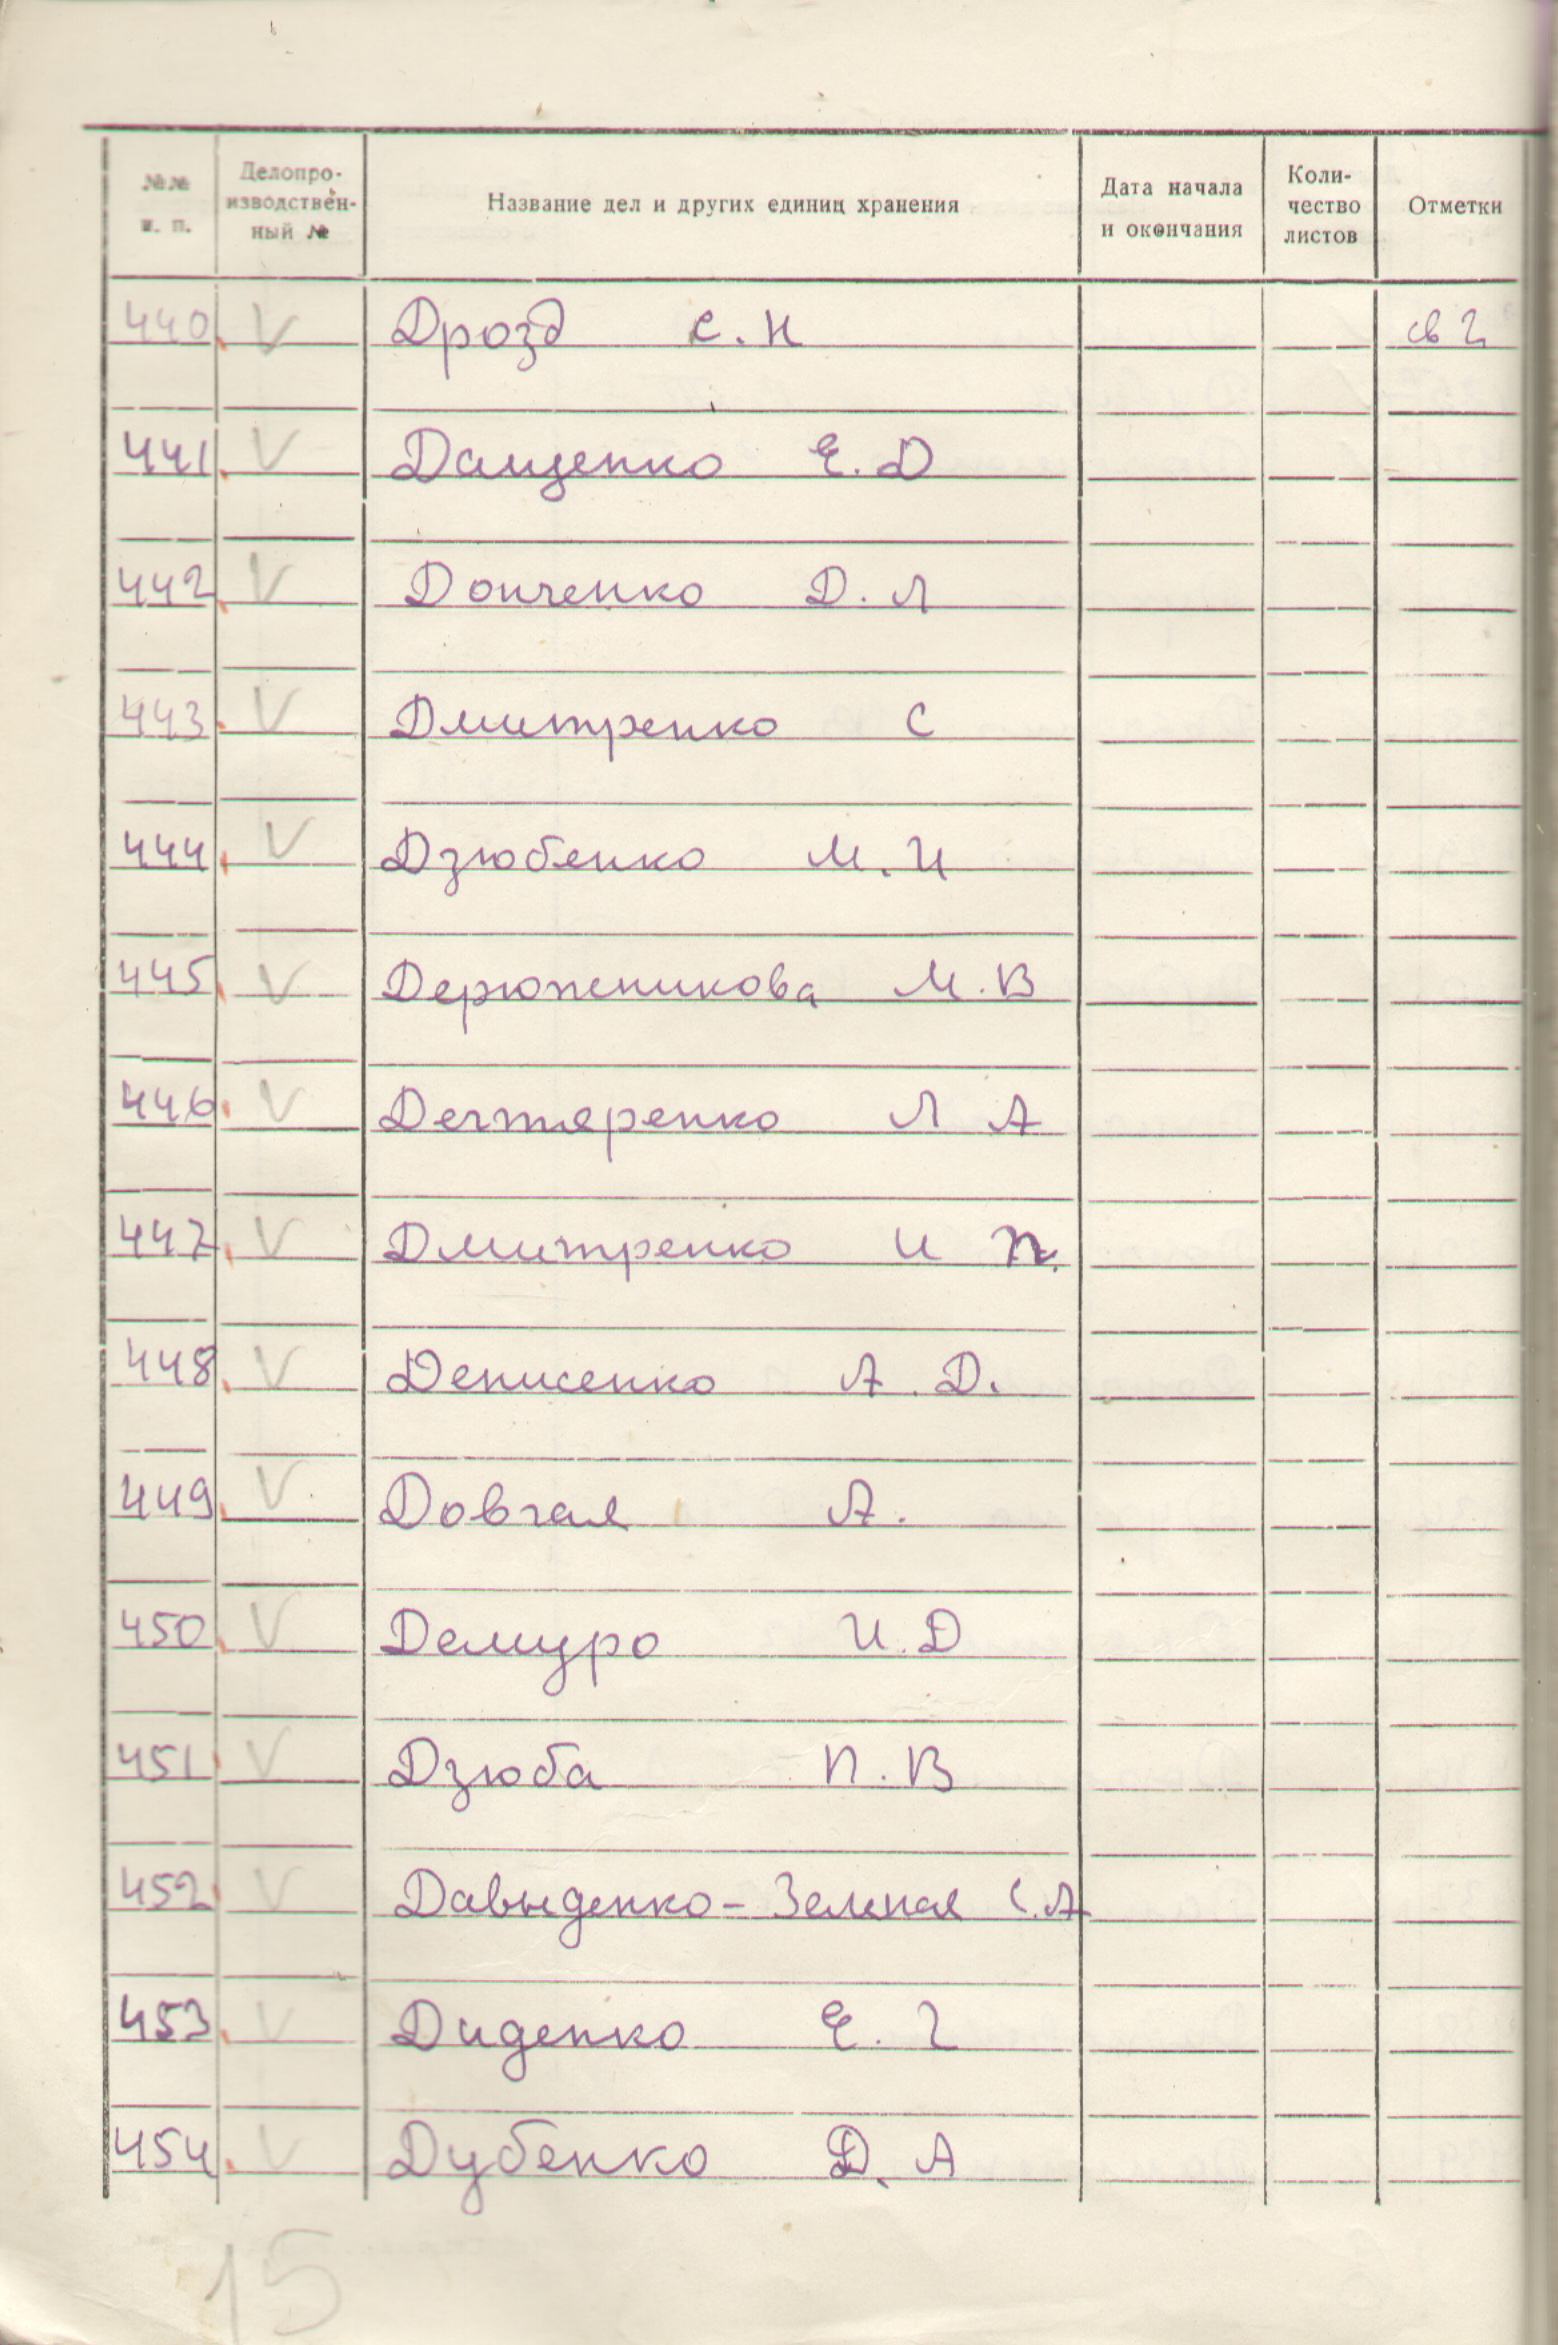 №№ п. п. Делопроизводственный № Название дел и других единиц хранения Дата начала и окончания Количество листов Отметки
440. V Дрозд С. Н св 2
441. V Дащенко Е. Д
442. V Донченко Д. Л
443. V Дмитренко С
444. V Дзюбенко М. И
445. V Дерюженикова М. В
446. V Дегтяренко Л А
447. V Дмитренко И П.
448. V Денисенко А. Д.
449. V Довгая А.
450. V Демуро И. Д
451. V Дзюба П. В
452. V Давыденко-Зеленая С. А
453. V Диденко Е. Г
454. V Дубенко Д. А
15